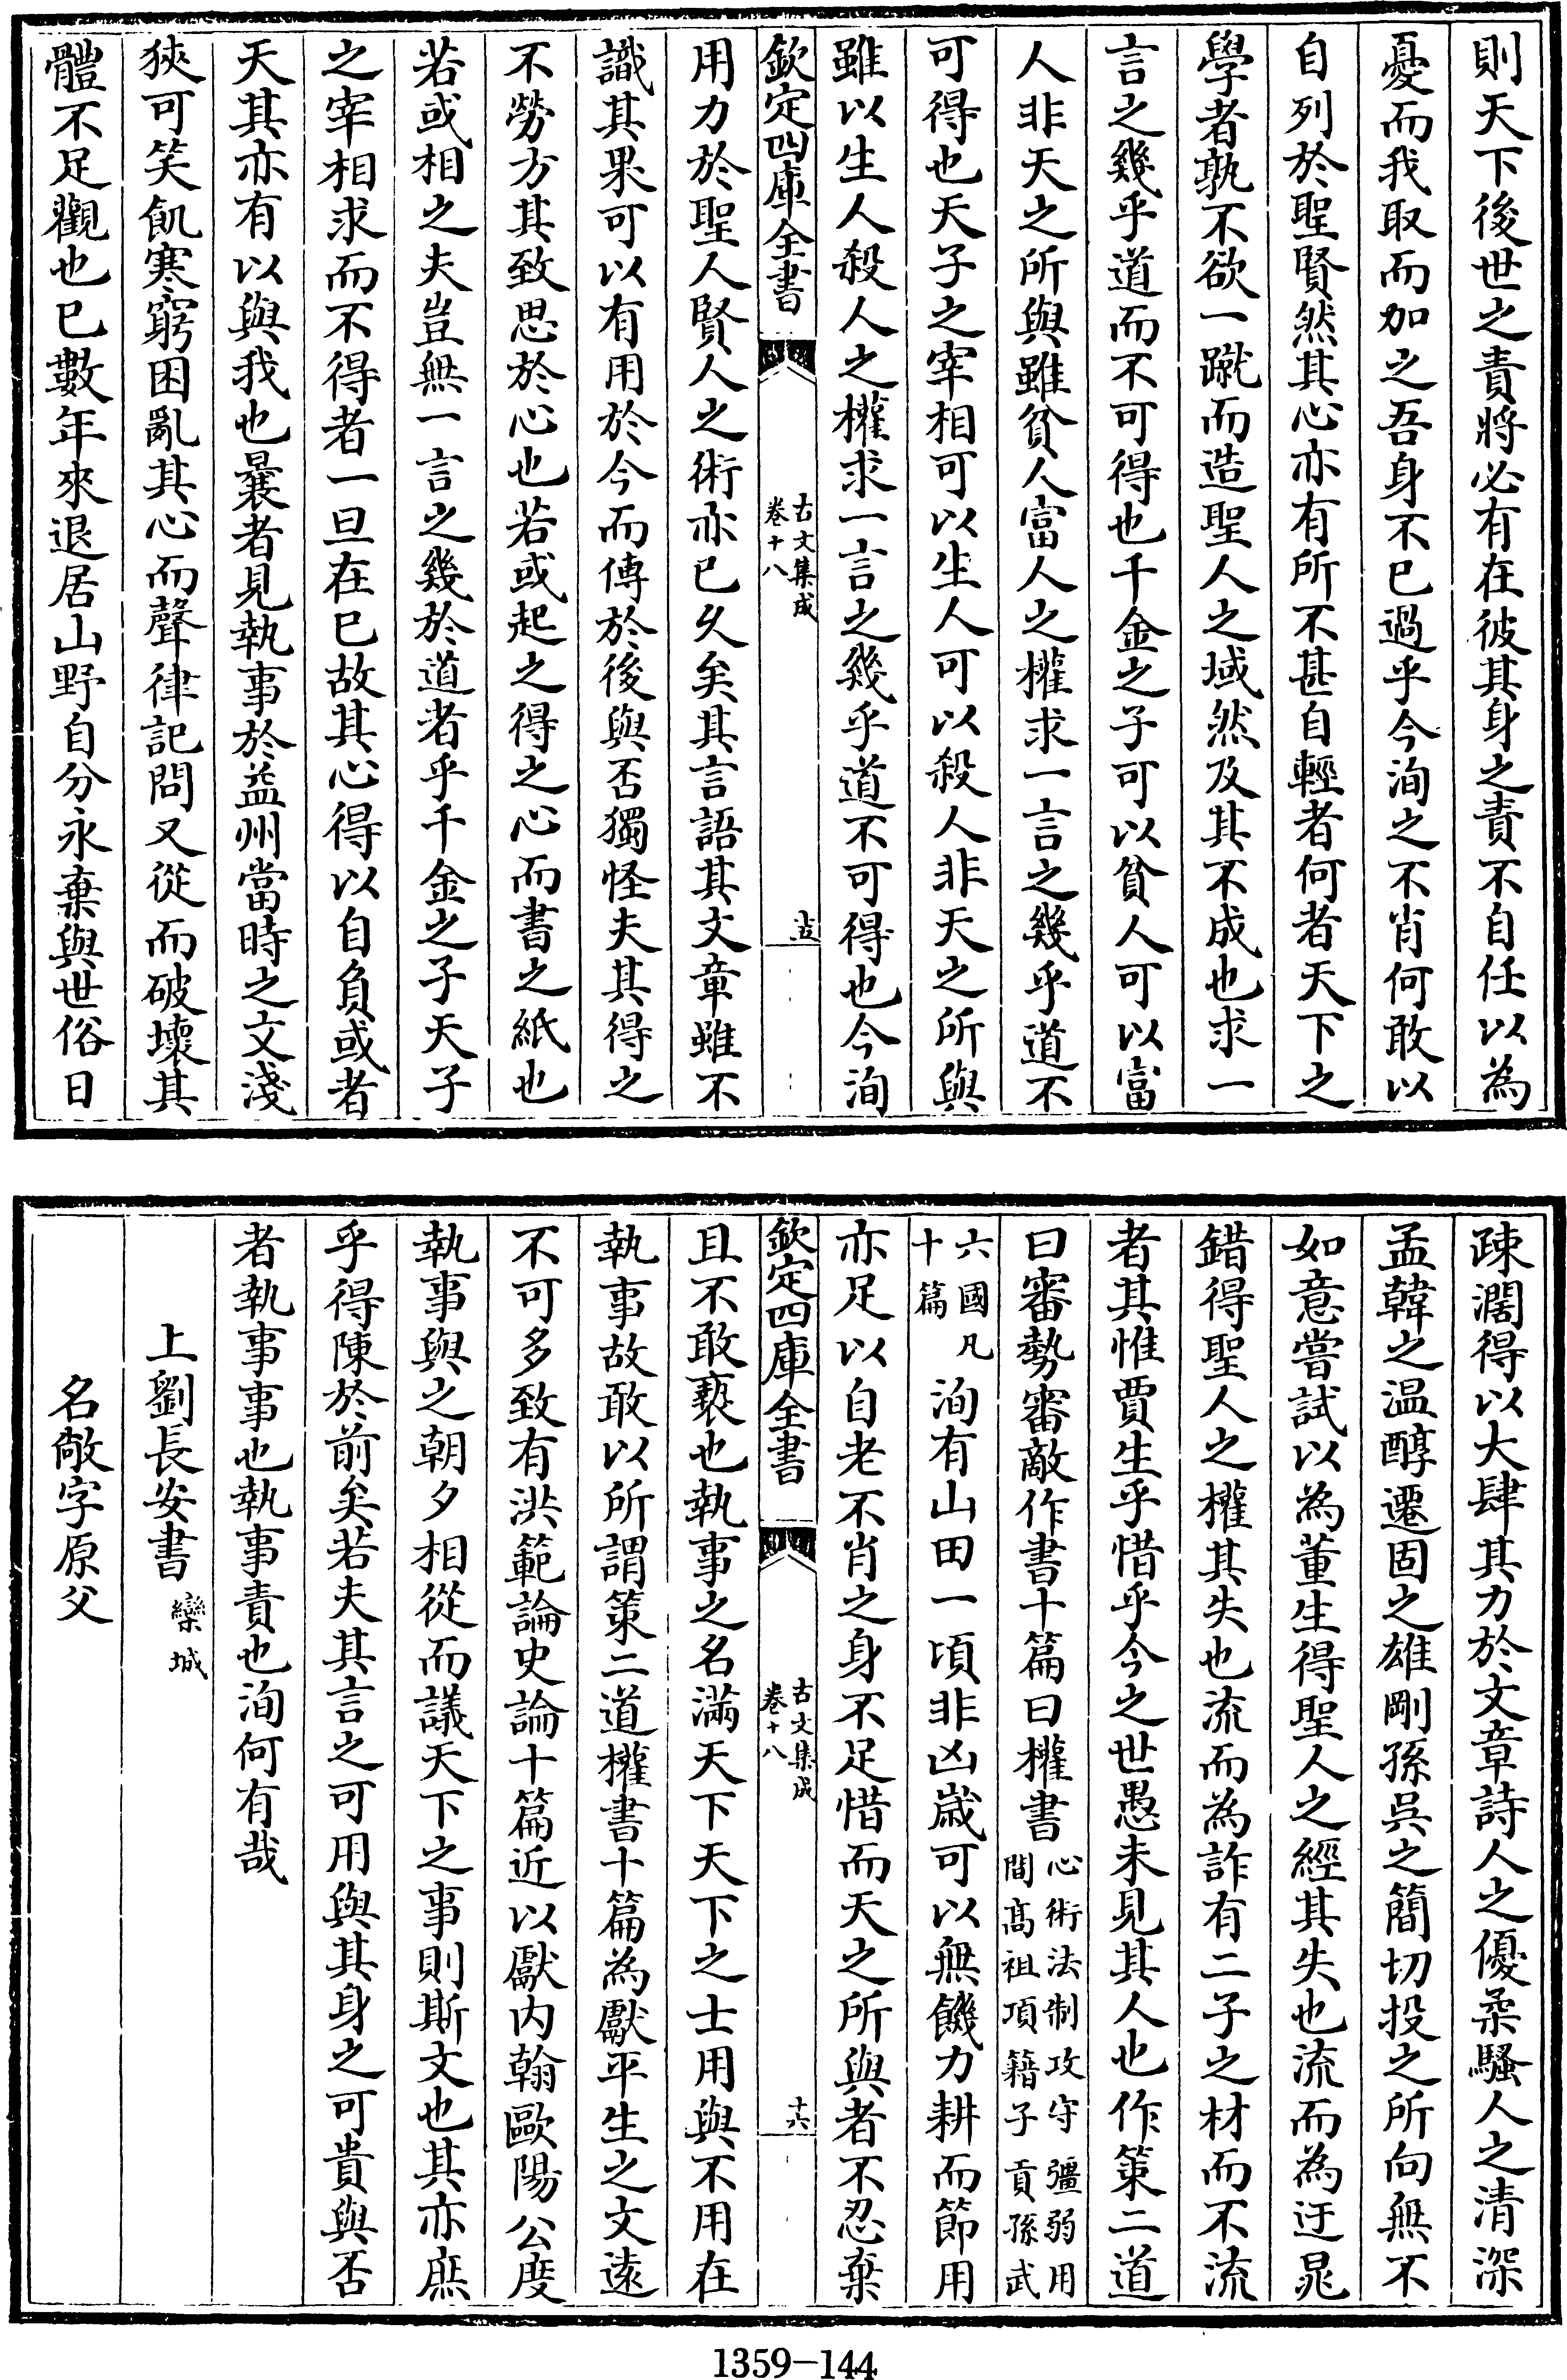 則天下後世之責將必有在彼其身之責不自任以為
憂而我取而加之吾身不已過乎今洵之不肖何敢以
自列於聖賢然其心亦有所不甚自輕者何者天下之
學者孰不欲一蹴而造聖人之域然及其不成也求一
言之幾乎道而不可得也千金之子可以貧人可以富
人非天之所與雖貧人富人之權求一言之幾乎道不
可得也天子之宰相可以生人可以殺人非天之所與
雖以生人殺人之權求一言之幾乎道不可得也今洵
欽定四庫全書
古文集成
卷十八
十五
用力於聖人賢人之術亦已久矣其言語其文章雖不
識其果可以有用於今而傳於後與否獨怪夫其得之
不勞方其致思於心也若或起之得之心而書之紙也
若或相之夫豈無一言之幾於道者乎千金之子天子
之宰相求而不得者一旦在已故其心得以自負或者
天其亦有以與我也曩者見執事於益州當時之文淺
狹可笑飢寒窮困亂其心而聲律記問又從而破壞其
體不足觀也已數年來退居山野自分永棄與世俗日
疎濶得以大肆其力於文章詩人之優柔騷人之清深
孟韓之温醇遷固之雄剛孫吳之簡切投之所向無不
如意嘗試以為董生得聖人之經其失也流而為迂晁
錯得聖人之權其失也流而為詐有二子之材而不流
者其惟賈生乎惜乎今之世愚未見其人也作策二道
曰審勢審敵作書十篇曰權書心術法制攻守彊弱用
間髙祖項籍子貢孫武
六國凡
十篇洵有山田一頃非凶歳可以無饑力耕而節用
亦足以自老不肖之身不足惜而天之所與者不忍棄
欽定四庫全書
古文集成
卷十八
十六
且不敢褻也執事之名滿天下天下之士用與不用在
執事故敢以所謂策二道權書十篇為獻平生之文遠
不可多致有洪範論史論十篇近以獻内翰歐陽公度
執事與之朝夕相從而議天下之事則斯文也其亦庶
乎得陳於前矣若夫其言之可用與其身之可貴與否
者執事事也執事責也洵何有哉
上劉長安書欒城
名敞字原父
1359-144